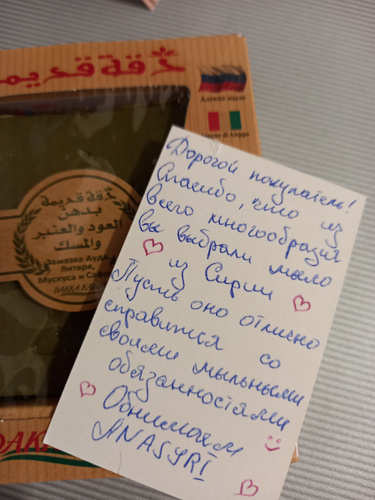 دقة قديمة
Алеппо мыло
di Aleppo
دقة قديمة
بدهن
العود والعنبر
والمسك
Уда,
Янтаря,
Мускуса и
DAKKA
Дорогой покупатель!
Спасибо, что из
всего многообразия
вы выбрали мыло
из Сирии
Пусть оно отлично
справится со
своими мыльными
обязанностями
Обнимаем
ANASYRI